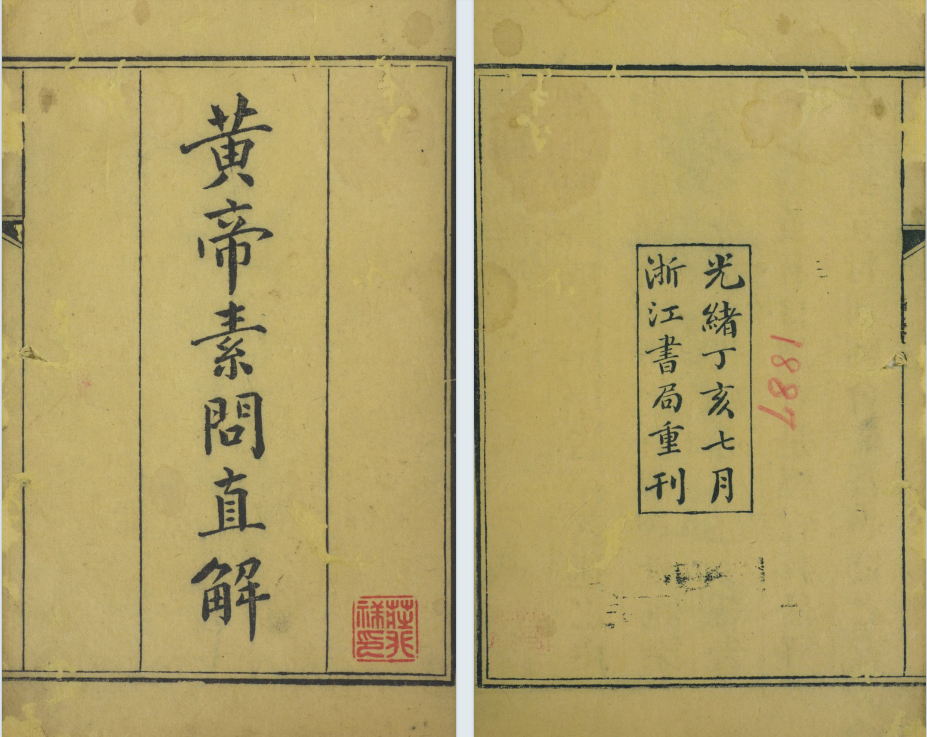 黃帝素問直解
光緒丁亥七月
浙江書局重刊
1887